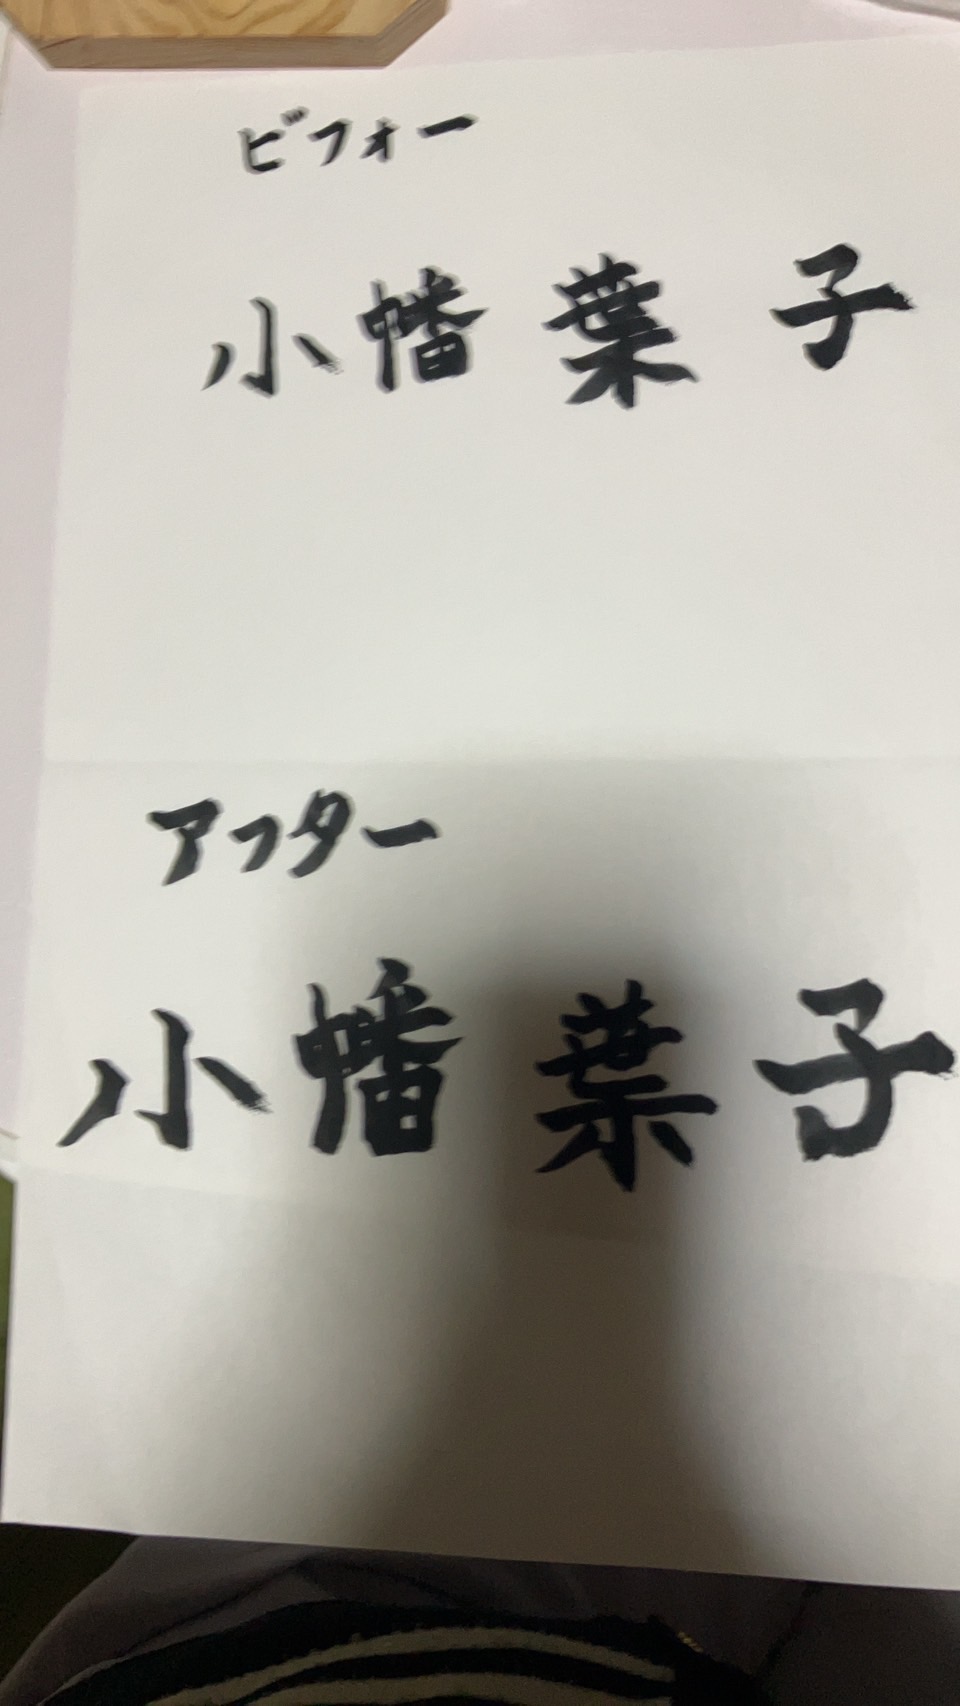 ビフォー
小幡葉子
アフター
小幡葉子